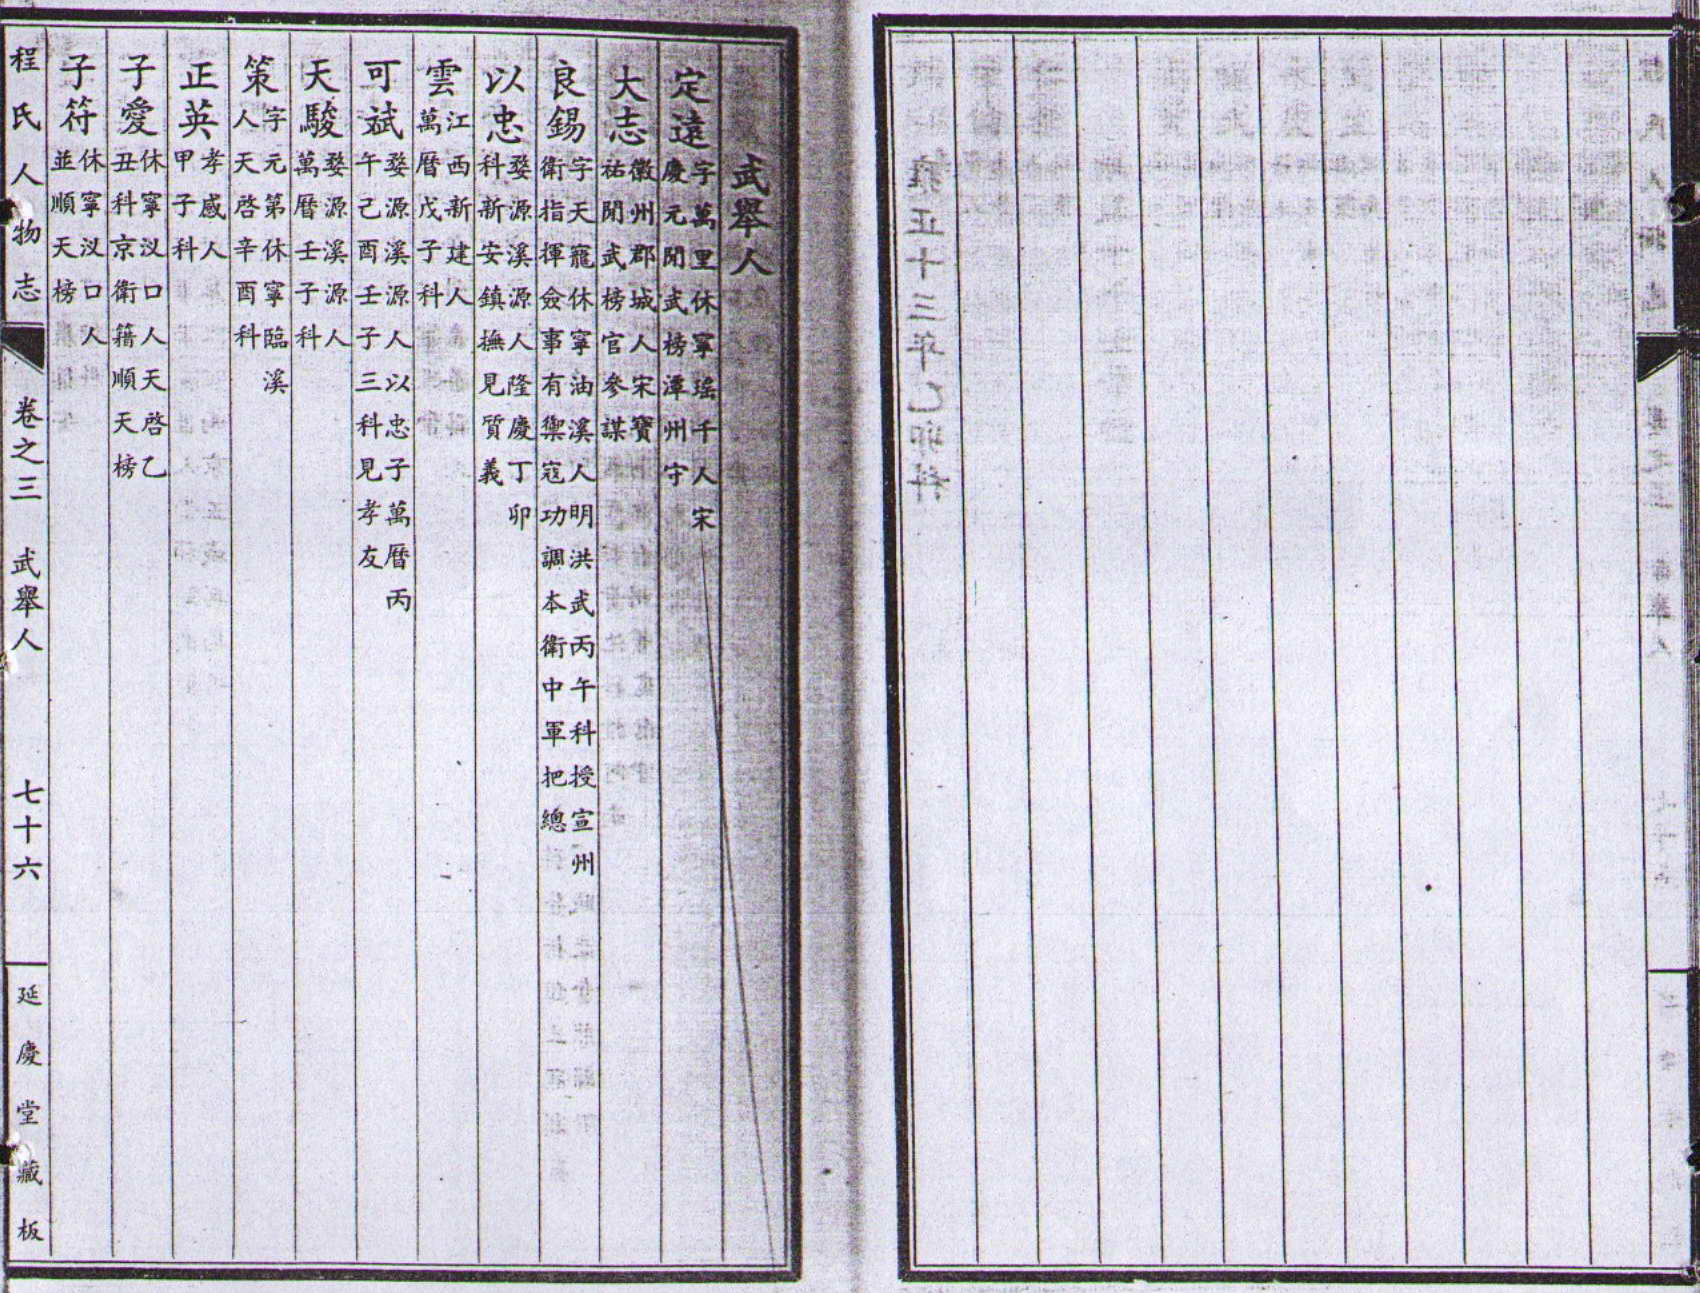 武舉人
定遠字萬里休寧瑤千人宋
慶元閒武榜潭州守
大志徽州郡城人宋寶
祐閒武榜官參謀
良錫字天寵休寧油溪人明洪武丙午科授宣州
衛指揮僉事有禦寇功調本衛中軍把總
以忠婺源溪源人隆慶丁卯
科新安鎮撫見質義
雲江西新建人
萬曆戊子科
可斌婺源溪源人以忠子萬曆丙
午己酉壬子三科見孝友
天駿婺源溪源人
萬曆壬子科
策字元第休寧臨溪
人天啓辛酉科
正英孝感人
甲子科
子愛休寧汊口人天啓乙
丑科京衛籍順天榜
子符休寧汊口人
並順天榜
程氏人物志 卷之三 武舉人 七十六 延慶堂藏板